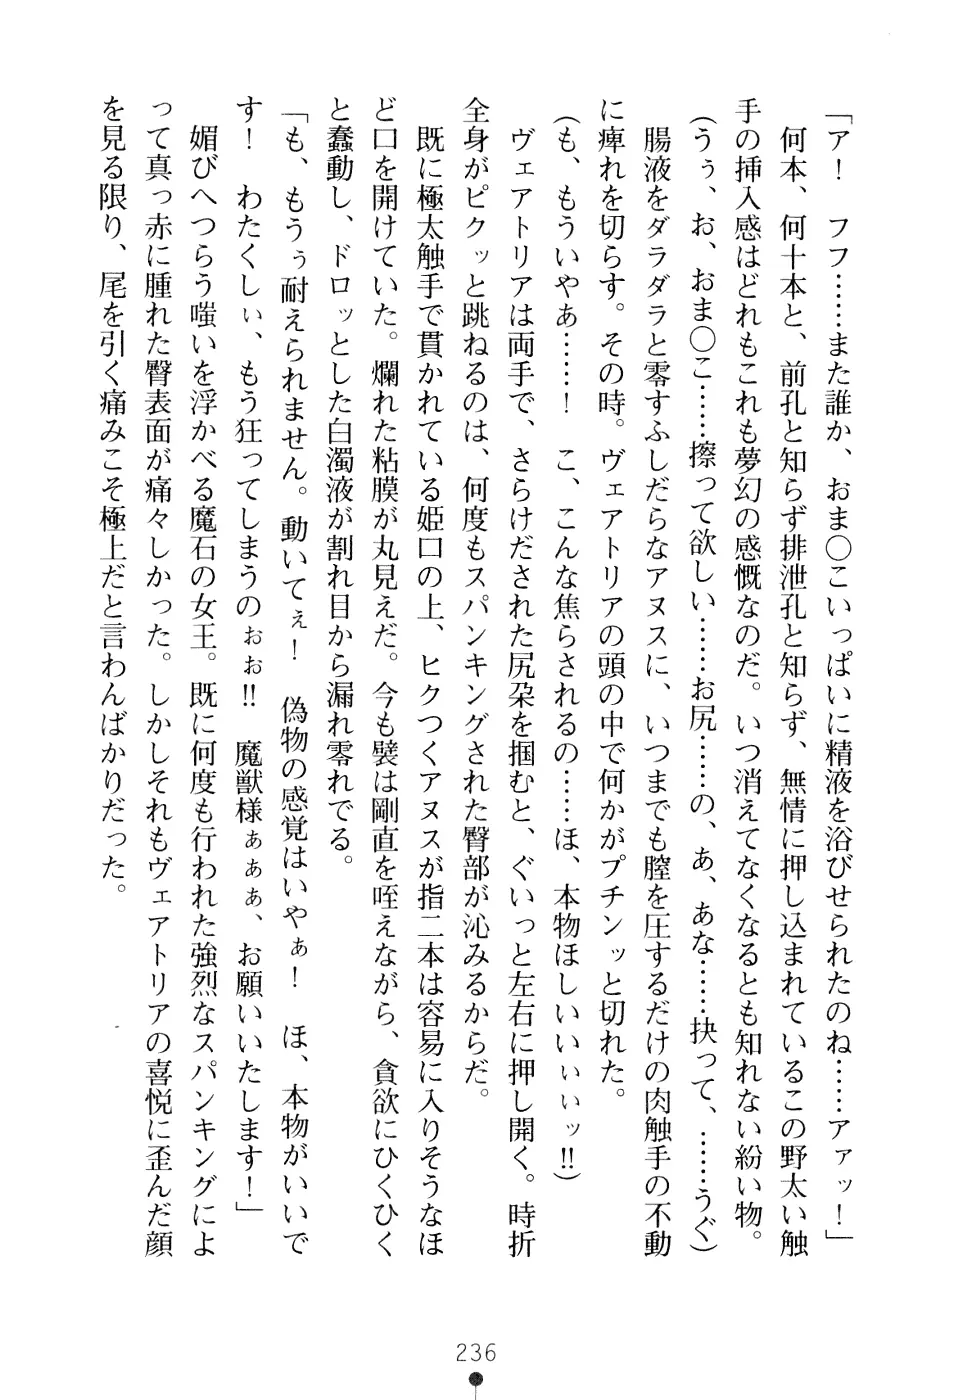 「ア！　フフ……また誰か、おま〇こいっぱいに精液を浴びせられたのね……アァッ！」
　何本、何十本と、前孔と知らず排泄孔と知らず、無情に押し込まれているこの野太い触
手の挿入感はどれもこれも夢幻の感慨なのだ。いつ消えてなくなるとも知れない紛い物。
(うぅ、お、おま〇こ……擦って欲しい……お尻……の、あ、あな……抉って、……うぐ)
　腸液をダラダラと零すふしだらなアヌスに、いつまでも膣を圧するだけの肉触手の不動
に痺れを切らす。その時。ヴェアトリアの頭の中で何かがプチンッと切れた。
(も、もういやあ……！　こ、こんな焦らされるの……ほ、本物ほしいいぃぃッ!!)
　ヴェアトリアは両手で、さらけだされた尻朶を掴むと、ぐいっと左右に押し開く。時折
全身がピクッと跳ねるのは、何度もスパンキングされた臀部が沁みるからだ。
　既に極太触手で貫かれている姫口の上、ヒクつくアヌスが指二本は容易に入りそうなほ
ど口を開けていた。爛れた粘膜が丸見えだ。今も襞は剛直を咥えながら、貪欲にひくひく
と蠢動し、ドロッとした白濁液が割れ目から漏れ零れでる。
「も、もうぅ耐えられません。動いてぇ！　偽物の感覚はいやぁ！　ほ、本物がいいで
す！　わたくしぃ、もう狂ってしまうのぉぉ!!　魔獣様ぁぁぁ、お願いいたします！」
　媚びへつらう嗤いを浮かべる魔石の女王。既に何度も行われた強烈なスパンキングによ
って真っ赤に腫れた臀表面が痛々しかった。しかしそれもヴェアトリアの喜悦に歪んだ顔
を見る限り、尾を引く痛みこそ極上だと言わんばかりだった。
236